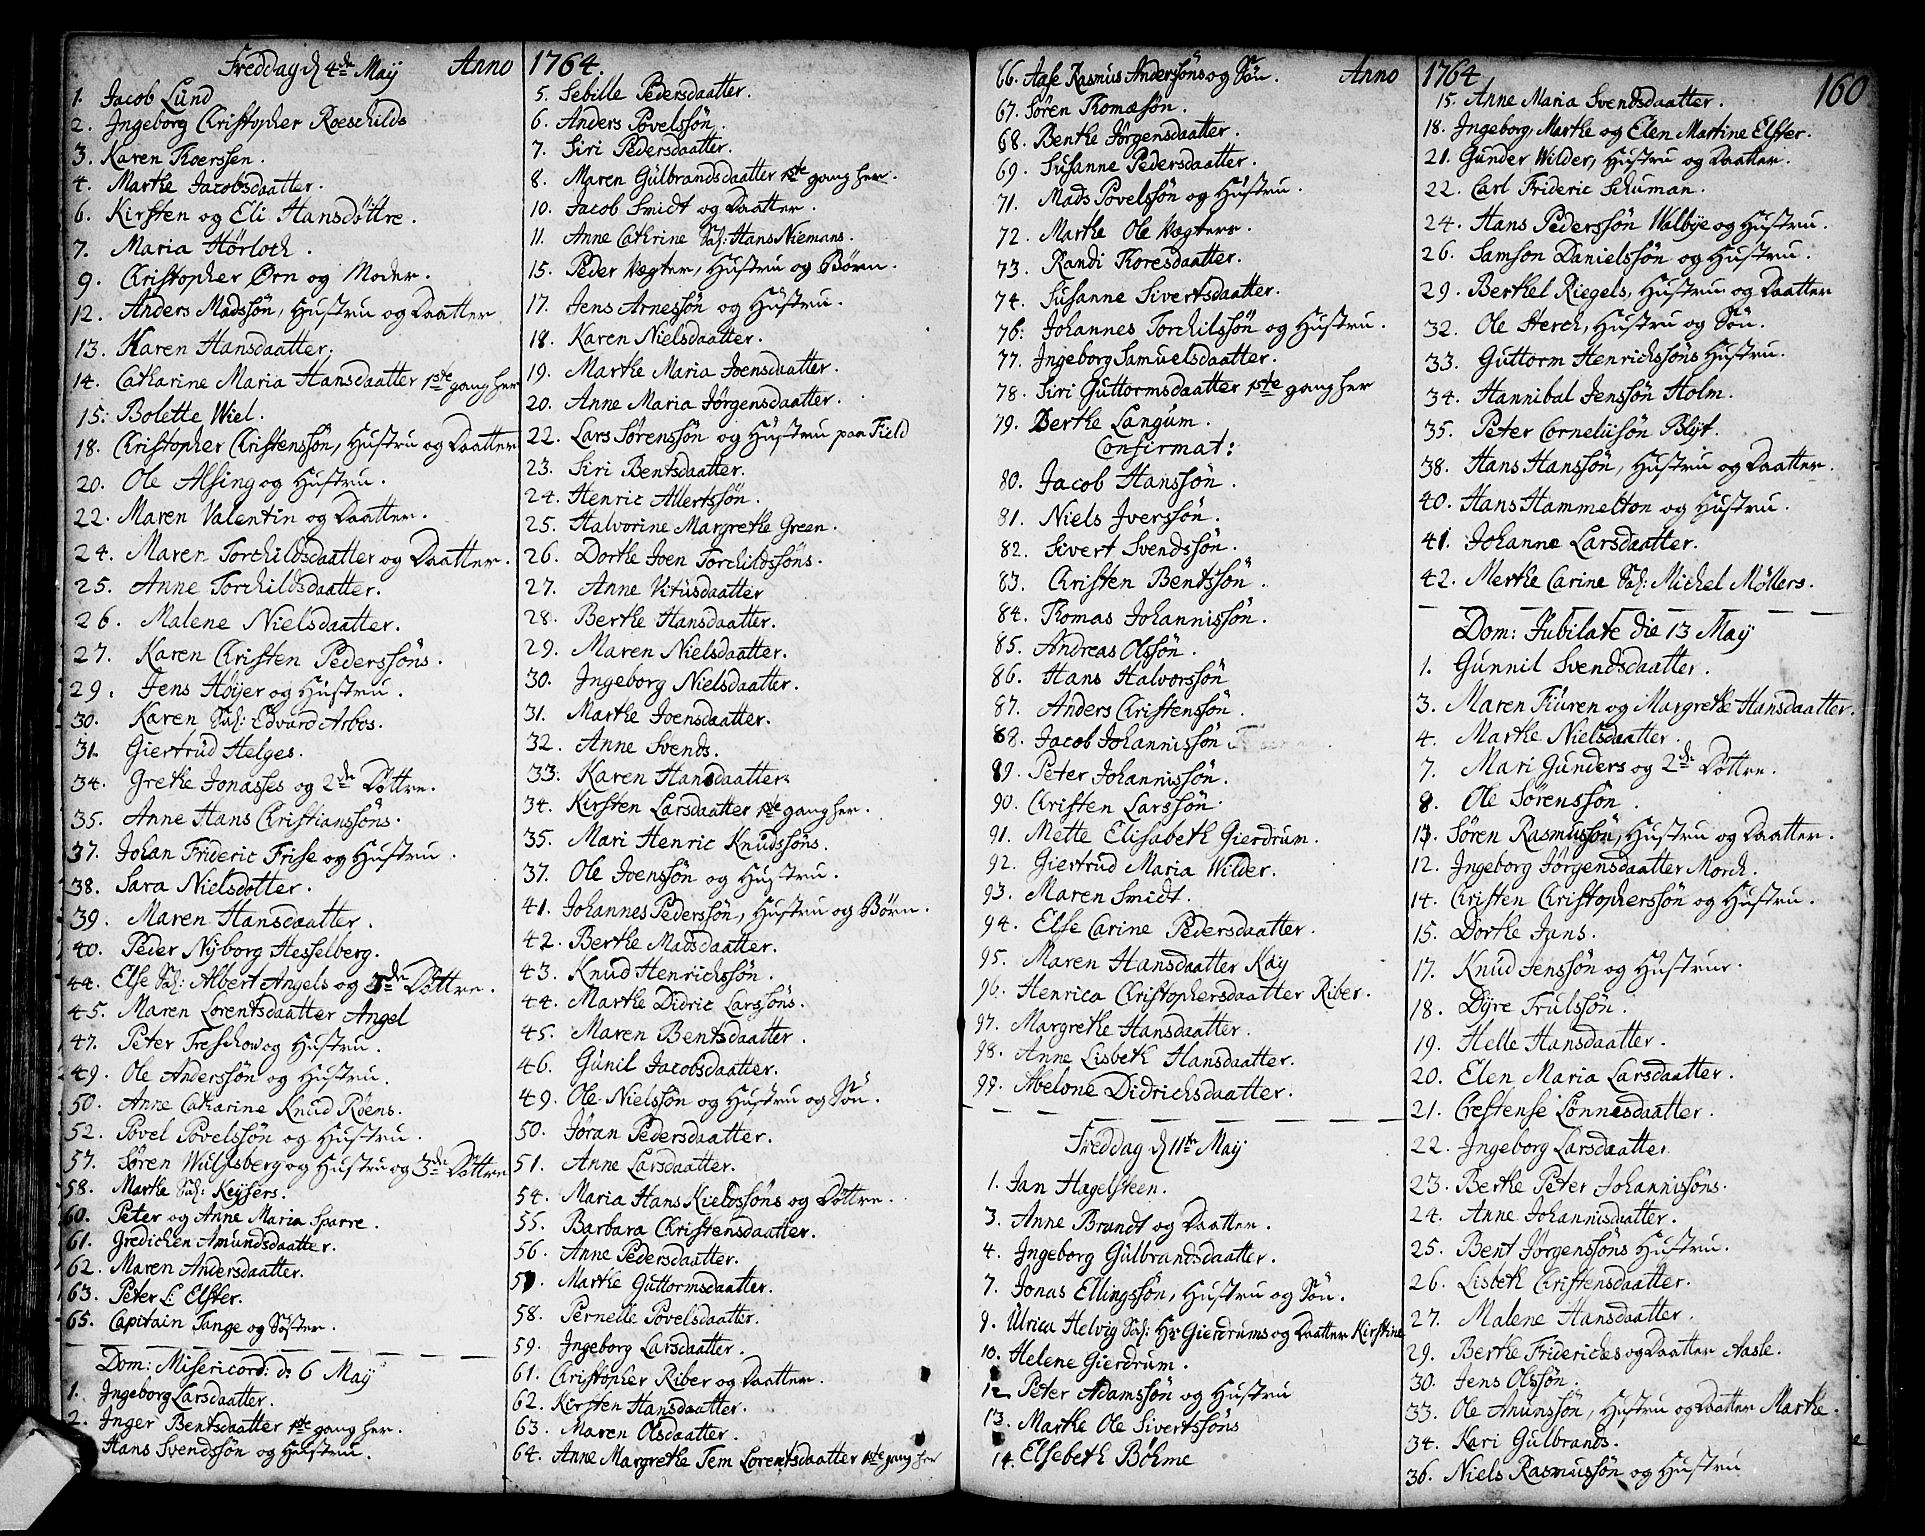 Freddag d 4de May Anno
1. Jacob Lund
2. Ingeborg Christopher Roeschilds
3. Karen Thoerssen.
4. Marthe Jacobsdaatter.
6. Kirsten og Eli Hansdøttre.
7. Maria Hörloch.
9. Christopher Ørn og Moder.
12. Anders Madssön, Hustru og Daatter
13. Karen Hansdaatter.
14. Catharine Maria Hansdaatter 1ste gang her
15: Bolette Wiel.
18. Christopher Christenssön, Hustru og Daatter
20. Ole Alsing og Hustru.
22. Maren Valentin og Daatter.
24. Maren Torchildsdaatter og Daatter.
25. Anne Torchildsdaatter.
26. Malene Nielsdaatter.
27. Karen Christen Pederssöns.
29. Jens Höyer og Hustru.
30. Karen Sal: Edvard Arbos.
31. Giertrud Helges.
34. Grethe Jonasses og 2de Döttre.
35. Anne Hans Christianssöns.
37. Johan Frideric Friise og Hustru.
38. Sara Nielsdotter.
39. Maren Hansdaatter.
40. Peder Nyborg Hesselberg.
44. Else Sal: Albert Angels og 3de Döttre.
45. Maren Lorentsdaatter Angel
47. Peter Treschow og Hustru.
49. Ole Anderssön og Hustru.
50. Anne Catharine Knud Röens.
52. Povel Povelssön og Hustru.
57. Sören Wulfsberg og Hustru og 3de Döttre
58. Marthe Sal: Keysers.
60. Peter og Anne Maria Sparre.
61. Gredichen Amundsdaatter.
62. Maren Andersdaatter.
63. Peter L: Elster.
65. Capitain Tange og Söster.
Dom: Misericord: d: 6 May
1. Ingeborg Larsdaatter.
2. Inger Bentsdaatter 1ste gang her.
Hans Svendssön og Hustru.
1764.
5. Sebille Pedersdaatter.
6. Anders Povelssön.
7. Siri Pedersdaatter.
8. Maren Gulbrandsdaatter 1ste gang her.
10. Jacob Smidt og Daatter.
11. Anne Cathrine Sal: Hans Niemans.
15. Peder Vægter, Hustru og Börn.
17. Jens Arnessön og Hustru.
18. Karen Nielsdaatter.
19. Marthe Maria Joensdaatter.
20. Anne Maria Jörgensdaatter.
22. Lars Sörenssön og Hustru paa Field
23. Siri Bentsdaatter.
24. Henric Allertssön.
25. Halvorine Margrethe Green.
26. Dorthe Joen Torchildssöns.
27. Anne Vitusdaatter
28. Berthe Hansdaatter.
29. Maren Nielsdaatter.
30. Ingeborg Nielsdaatter.
31. Marthe Joensdaatter.
32. Anne Svends.
33. Karen Hansdaatter.
34. Kirsten Larsdaatter 1ste gang her.
35. Mari Henric Knudssöns.
37. Ole Joenssön og Hustru.
41. Johannes Pederssön, Hustru og Börn.
42. Berthe Madsdaatter.
43. Knud Henrichssön.
44. Marthe Didric Larssöns.
45. Maren Bentsdaatter.
46. Gunil Jacobsdaatter.
49. Ole Nielssön og Hustru og Sön.
50. Jöran Pedersdaatter.
51. Anne Larsdaatter.
54. Maria Hans Kieldssöns og Döttre.
55. Barbara Christensdaatter.
56. Anne Pedersdaatter.
57. Marthe Guttormsdaatter.
58. Pernelle Povelsdaatter.
59. Ingeborg Larsdaatter.
61. Christopher Riber og Daatter.
62. Kirsten Hansdaatter.
63. Maren Olsdaatter.
64. Anne Margrethe Tem Lorentsdaatter 1ste gang her
66. Aase Rasmus Anderssöns og Sön. Anno
67. Sören Thomæsön.
68. Benthe Jörgensdaatter.
69. Susanne Pedersdaatter.
71. Mads Povelssön og Hustru.
72. Marthe Ole Vægters.
73. Randi Thoresdaatter.
74. Susanne Sivertsdaatter.
76. Johannes Torchilssön og Hustru.
77. Ingeborg Samuelsdaatter.
78. Siri Guttormsdaatter 1ste gang her
79. Berthe Langum.
Confirmat:
80. Jacob Hanssön.
81. Niels Iverssön.
82. Sivert Svendssön.
83. Christen Bentssön.
84. Thomas Johannissön.
85. Andreas Olssön.
86. Hans Halvorssön
87. Anders Christenssön.
88. Jacob Johannissön
89. Peter Johannissön.
90. Christen Larssön.
91. Mette Elisabeth Gierdrum.
92. Giertrud Maria Wilder.
93. Maren Smidt.
94. Else Carine Pedersdaatter.
95. Maren Hansdaatter Kay
96. Henrica Christophersdaatter Riber.
97. Margrethe Hansdaatter.
98. Anne Lisbeth Hansdaatter.
99. Abelone Didrichsdaatter.
Freddag d 11te May
1. Jan Hagelsteen.
3. Anne Brandt og Daatter.
4. Ingeborg Gulbrandsdaatter.
7. Jonas Ellingssön, Hustru og Sön.
9. Ulrica Helvig Sal: Hr Gierdrums og Daatter Kirstine
10. Helene Gierdrum.
12. Peter Adamssön og Hustru
13. Marthe Ole Sivertssöns
14. Elsebeth Böhme
1764. 160
15. Anne Maria Svendsdaatter.
18. Ingeborg, Marthe og Elen Martine Elster.
21. Gunder Wilder, Hustru og Daatter.
22. Carl Frideric Schuman.
24. Hans Pederssön Walbye og Hustru.
26. Samson Danielssön og Hustru.
29. Berthel Riegels, Hustru og Daatter
32. Ole Herch, Hustru og Sön.
33. Guttorm Henrichssöns Hustru.
34. Hannibal Jenssön Holm.
35. Peter Corneliisön Blyt.
38. Hans Hanssön, Hustru og Daatter.
40. Hans Hammelton og Hustru.
41. Johanne Larsdaatter.
42. Merthe Carine Sal: Michel Møllers.
Dom: Jubilate die 13 May
1. Gunnil Svendsdaatter.
3. Maren Fiuren og Margrethe Hansdaatter.
4. Marthe Nielsdaatter.
7. Mari Gunders og 2de Döttre.
8. Ole Sörenssön.
11. Sören Rasmussön, Hustru og Daatter.
12. Ingeborg Jörgensdaatter Morch.
14. Christen Christopherssön og Hustru.
15. Dorthe Jans.
17. Knud Jenssön og Hustrue.
18. Dyre Trulssön.
19. Helle Hansdaatter.
20. Elen Maria Larsdaatter.
21. Crestense Lönnesdaatter.
22. Ingeborg Larsdaatter
23. Berthe Peter Johannissöns.
24. Anne Johannisdaatter.
25. Bent Jörgenssöns Hustru.
26. Lisbeth Christensdaatter.
27. Malene Hansdaatter.
29. Berthe Friderichs og Daatter Aasle.
30. Jens Olssön.
33. Ole Anunssön, Hustru og Daatter Marthe.
34. Kari Gulbrands.
36. Niels Rasmussön og Hustru